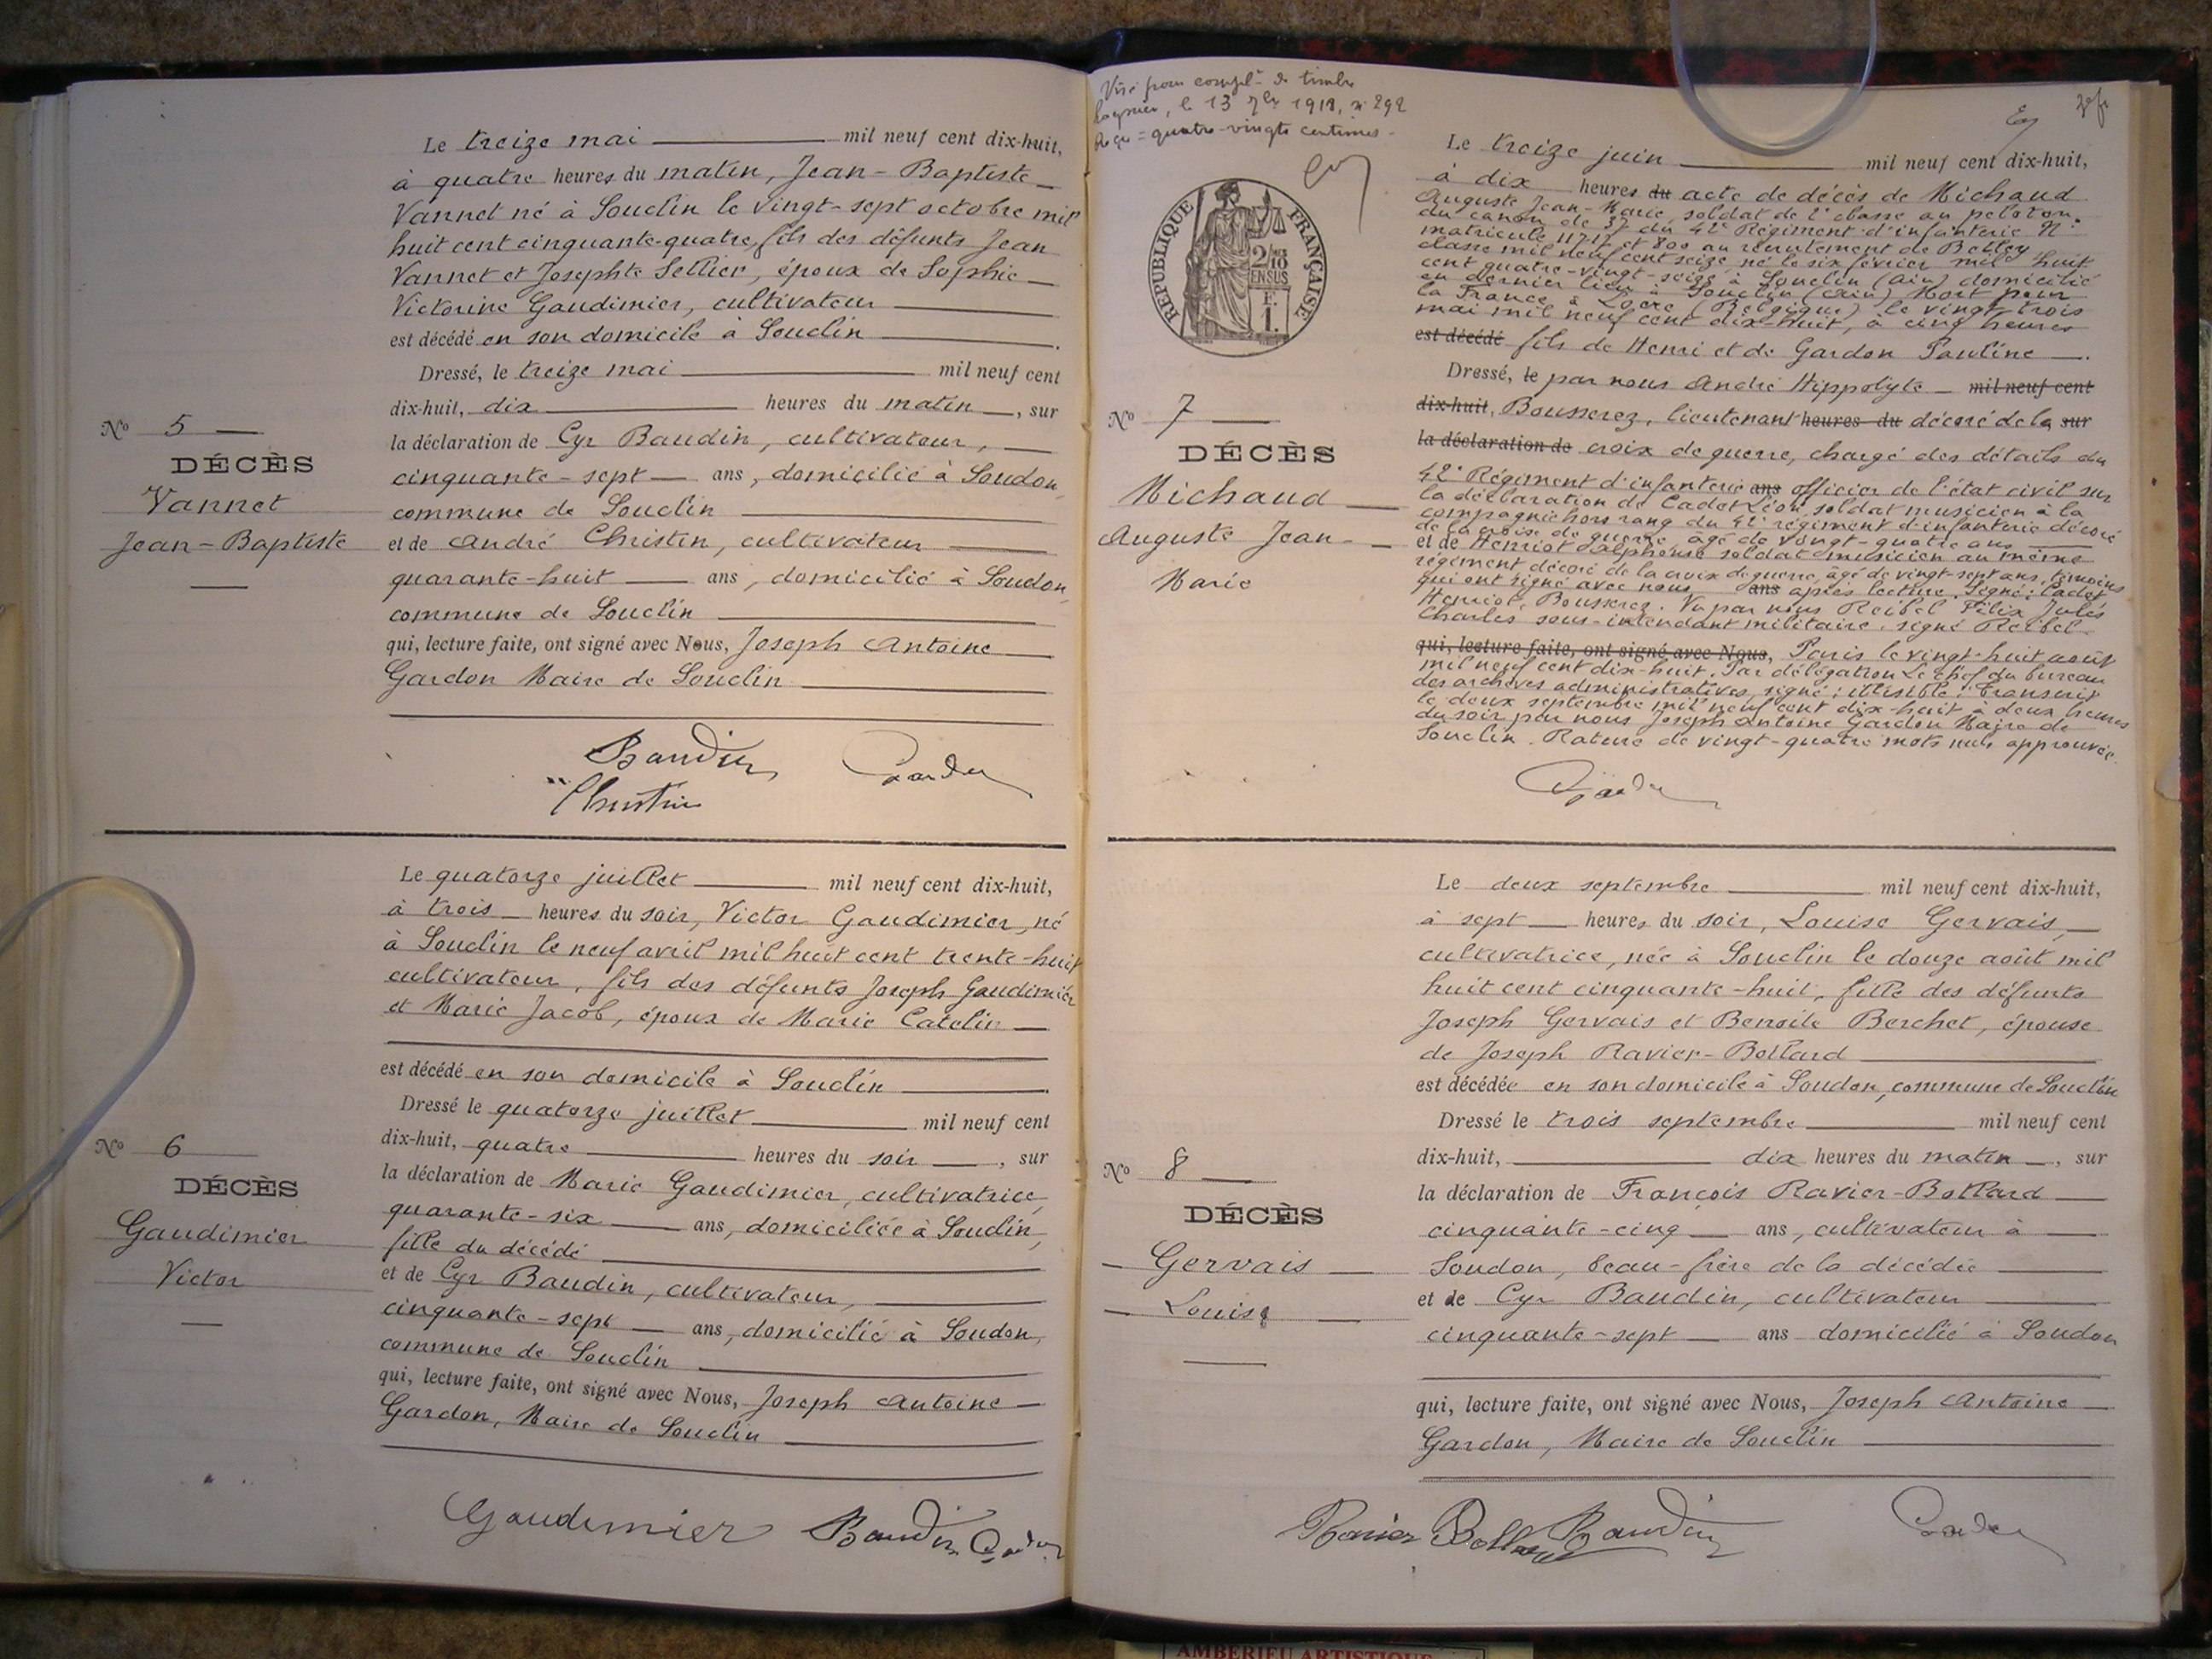 Le treize mai mil neuf cent dix-huit,
à quatre heures du matin, Jean-Baptiste
Vannet né à Souclin le vingt-sept octobre mil
huit cent cinquante-quatre, fils des défunts Jean
Vannet et Josephte Sellier, époux de Sophie
Victorine Gaudimier, cultivateur
est décédé en son domicile à Souclin
Dressé, le treize mai mil neuf cent
dix-huit, dix heures du matin, sur
la déclaration de Cyr Baudin, cultivateur,
cinquante-sept ans, domicilié à Soudon,
commune de Souclin
et de André Christin, cultivateur
quarante-huit ans, domicilié à Soudon,
commune de Souclin
qui, lecture faite, ont signé avec Nous, Joseph Antoine
Gardon Maire de Souclin
Nº 5
DÉCÈS
Vannet
Jean-Baptiste
Baudin Gardon
Christin
Le quatorze juillet mil neuf cent dix-huit,
à trois heures du soir, Victor Gaudimier, né
à Souclin le neuf avril mil huit cent trente-huit
cultivateur, fils des défunts Joseph Gaudimier
et Marie Jacob, époux de Marie Catelin
est décédé en son domicile à Souclin
Dressé le quatorze juillet mil neuf cent
dix-huit, quatre heures du soir, sur
la déclaration de Marie Gaudimier, cultivatrice,
quarante-six ans, domiciliée à Souclin,
fille du décédé
et de Cyr Baudin, cultivateur,
cinquante-sept ans, domicilié à Soudon,
commune de Souclin
qui, lecture faite, ont signé avec Nous, Joseph Antoine
Gardon, Maire de Souclin
Nº 6
DÉCÈS
Gaudimier
Victor
Gaudimier Baudin Gardon
Visé pour compl de timbre
Lagnieu, le 13 7bre 1918, nº 292
Reçu = quatre-vingts centimes
REPUBLIQUE FRANÇAISE
2/10 EN SUS
Le treize juin mil neuf cent dix-huit,
à dix heures du acte de décès de Michaud
Auguste Jean-Marie, soldat de 2e classe au peloton
du canon de 37 du 42e Régiment d'infanterie Nº
matricule 11717 et 800 au recrutement de Belley
classe mil neuf cent seize, né le six février mil huit
cent quatre-vingt-seize à Souclin (Ain) domicilié
en dernier lieu à Souclin (Ain) Mort pour
la France à Locre (Belgique) le vingt trois
mai mil neuf cent dix-huit, à cinq heures
est décédé fils de Henri et de Gardon Pauline
Dressé, le par nous André Hippolyte mil neuf cent
dix-huit, Bousserez, lieutenant heures du décoré de la sur
la déclaration de croix de guerre, chargé des détails du
42e Régiment d'infanterie ans officier de l'état civil sur
la déclaration de Cadet Léon, soldat musicien à la
compagnie hors rang du 42e régiment d'infanterie décoré
de la croix de guerre, âgé de vingt-quatre ans
et de Henriot Alphonse soldat musicien au même
régiment décoré de la croix de guerre, âgé de vingt-sept ans, témoins
qui ont signé avec nous ans après lecture. Signé: Cadet
Henriot, Bousserez. Vu par nous Reibel Félix Jules
Charles sous-intendant militaire. signé Reibel
qui, lecture faite, ont signé avec Nous, Paris le vingt-huit août
mil neuf cent dix-huit. Par délégation Le chef du bureau
des archives administratives, signé: illisible. Transcrit
le deux septembre mil neuf cent dix-huit à deux heures
du soir par nous Joseph Antoine Gardon Maire de
Souclin. Rature de vingt-quatre mots nuls approuvée.
Nº 7
DÉCÈS
Michaud
Auguste Jean-
Marie
Gardon
Le deux septembre mil neuf cent dix-huit,
à sept heures du soir, Louise Gervais,
cultivatrice, née à Souclin le douze août mil
huit cent cinquante-huit, fille des défunts
Joseph Gervais et Benoîte Berchet, épouse
de Joseph Ravier-Bollard
est décédée en son domicile à Soudon, commune de Souclin
Dressé le trois septembre mil neuf cent
dix-huit, dix heures du matin, sur
la déclaration de François Ravier-Bollard
cinquante-cinq ans, cultivateur à
Soudon, beau-frère de la décédée
et de Cyr Baudin, cultivateur
cinquante-sept ans domicilié à Soudon
qui, lecture faite, ont signé avec Nous, Joseph Antoine
Gardon, Maire de Souclin
Nº 8
DÉCÈS
Gervais
Louise
Ravier Bollard Baudin Gardon
AMBERIEU ARTISTIQUE